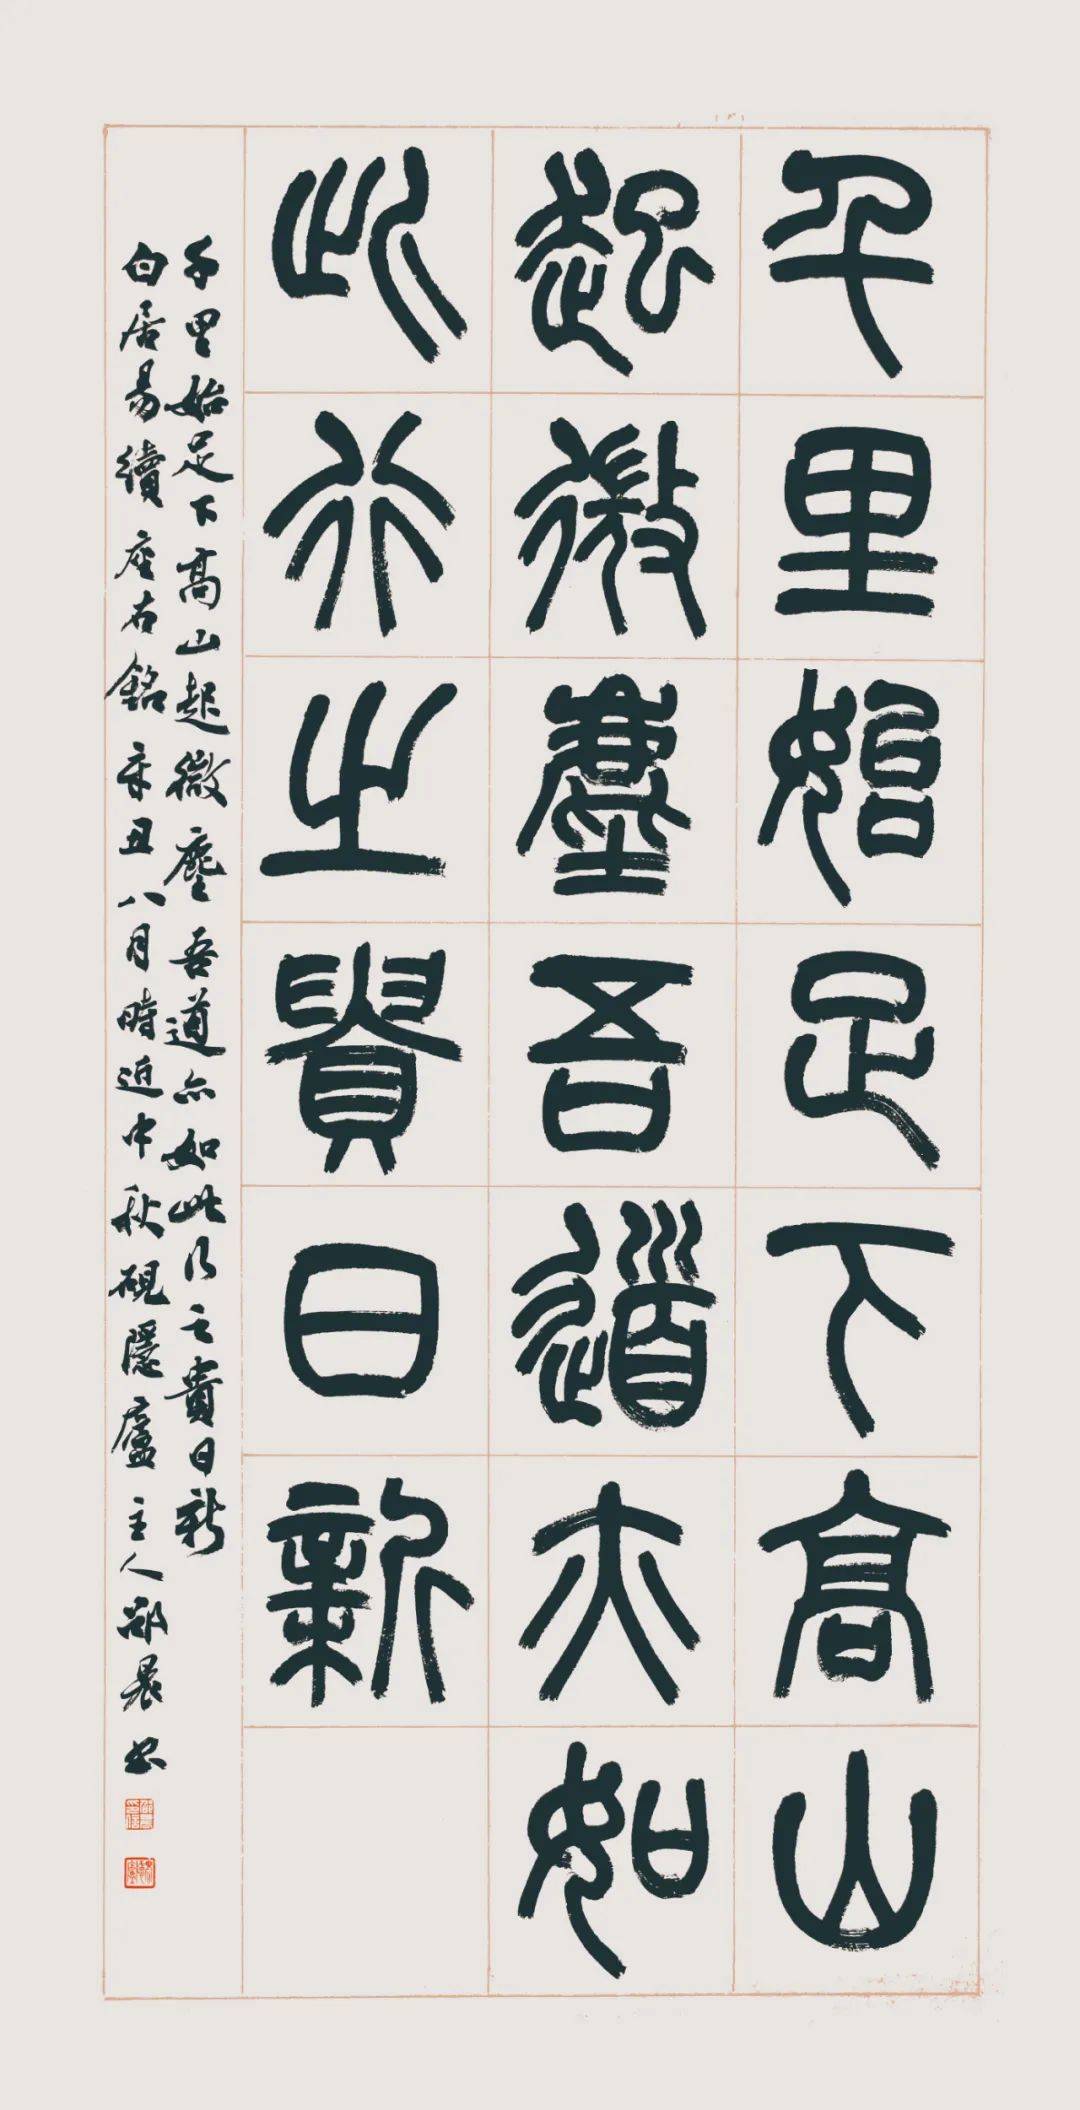 千里始足下高山
起微塵吾道亦如
此行之貴日新
千里始足下高山起微塵吾道亦如此行之貴日新
白居易續座右銘辛丑八月時近中秋硯隱廬主人邵晨書